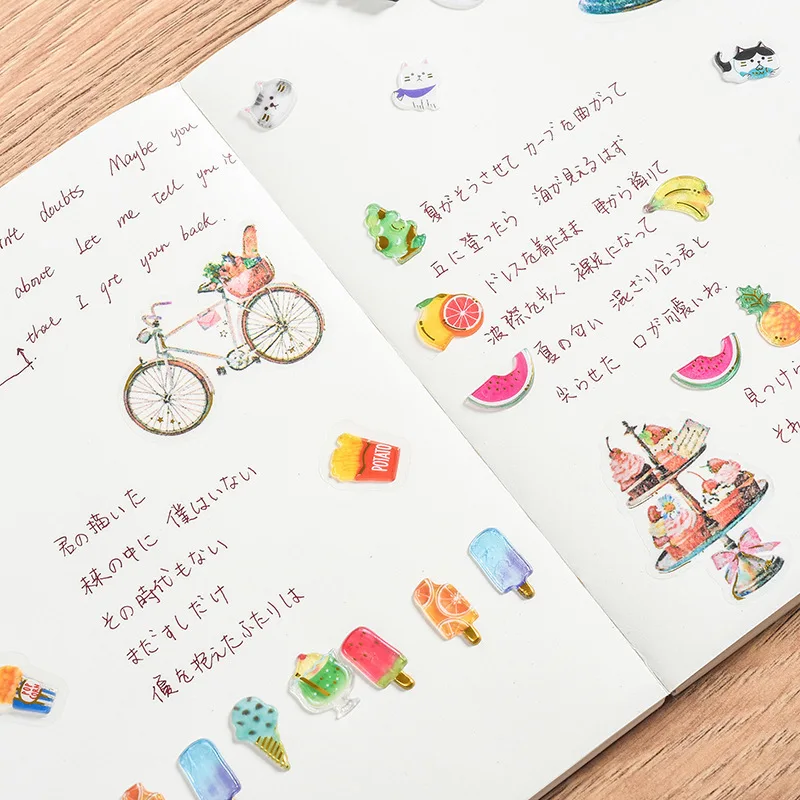 doubts Maybe you
above Let me tell you it
I got your back.
君の描いた
未来の中に 僕はいない
その時代もない
まだすしだけ
傷を抱えたふたりは
POTATO
POP
CORN
夏がそうさせて カーブを曲がって
丘に登ったら 海が見えるはず
ドレスを着たまま 車から降りて
波際を歩く 裸足になって
夏の匂い 混ざり合う君と
尖らせた 口が可愛いね
見つけら
それ